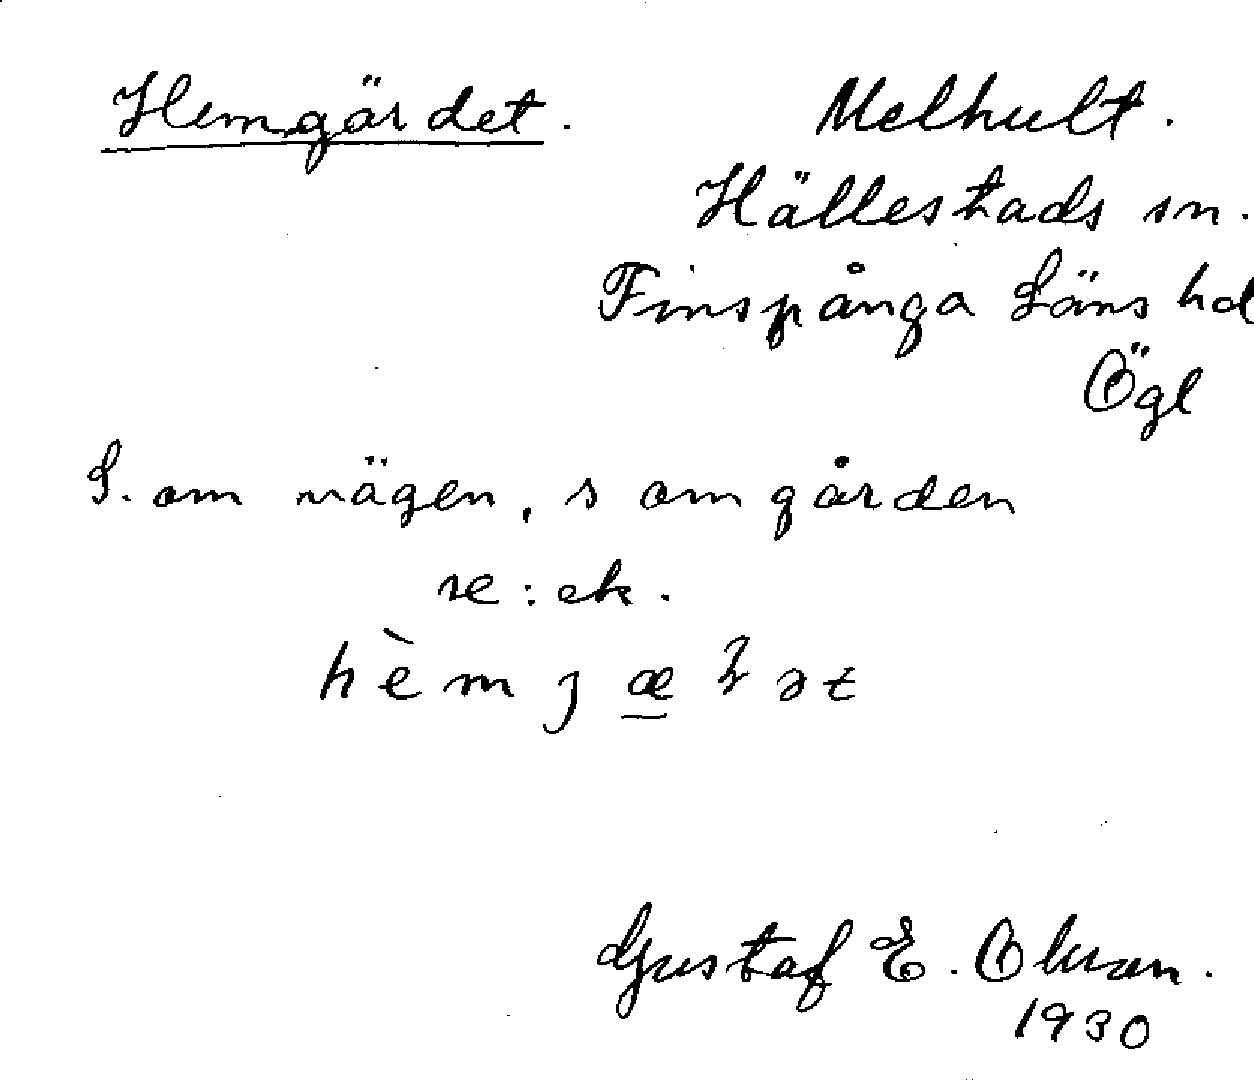 Hemgärdet. Melhult.
Hällestads sn.
Finspånga Läns hd
Ögl
S. om vägen, s om gården
se: ek.
hèmjæ̱ꝛət
Gustaf E. Olsson.
1930